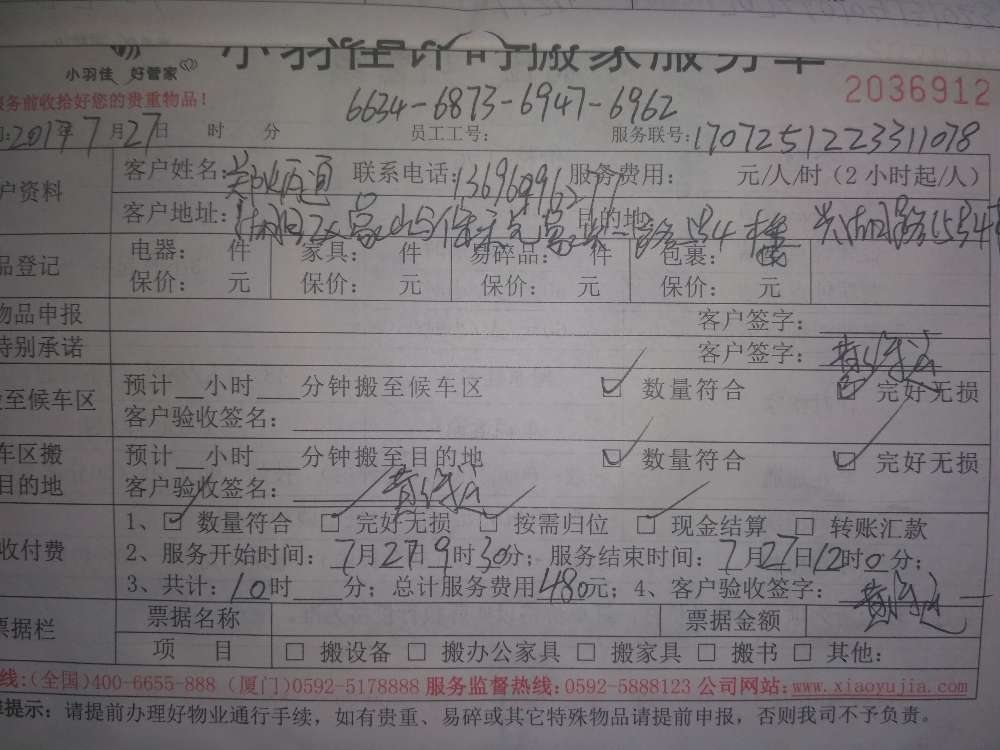 小羽佳计时搬家服务单
小羽佳 好管家
务前收拾好您的贵重物品！
2036912
6634-6873-6947-6962
:2017年7月27日 时 分 员工工号: 服务联号:1707251223311078
户资料 客户姓名: 联系电话: 服务费用: 元/人/时（2小时起/人）
客户地址: 目的地
品登记 电器: 件 家具: 件 易碎品: 件 包裹: 件
保价: 元 保价: 元 保价: 元 保价: 元
物品申报 客户签字:
特别承诺 客户签字:
至候车区 预计 小时 分钟搬至候车区 ☑ 数量符合 ☑ 完好无损
客户验收签名:
车区搬 预计 小时 分钟搬至目的地 ☑ 数量符合 ☑ 完好无损
目的地 客户验收签名:
收付费 1、☑ 数量符合 ☑ 完好无损 ☑ 按需归位 ☑ 现金结算 □ 转账汇款
2、服务开始时间: 7月27日9时30分; 服务结束时间: 7月27日12时0分;
3、共计: 10时 分; 总计服务费用480元; 4、客户验收签字:
票据栏 票据名称 票据金额
项 目 □ 搬设备 □ 搬办公家具 □ 搬家具 □ 搬书 □ 其他:
线:(全国)400-6655-888 (厦门)0592-5178888 服务监督热线:0592-5888123 公司网站:www.xiaoyujia.com
提示: 请提前办理好物业通行手续，如有贵重、易碎或其它特殊物品请提前申报，否则我司不予负责。